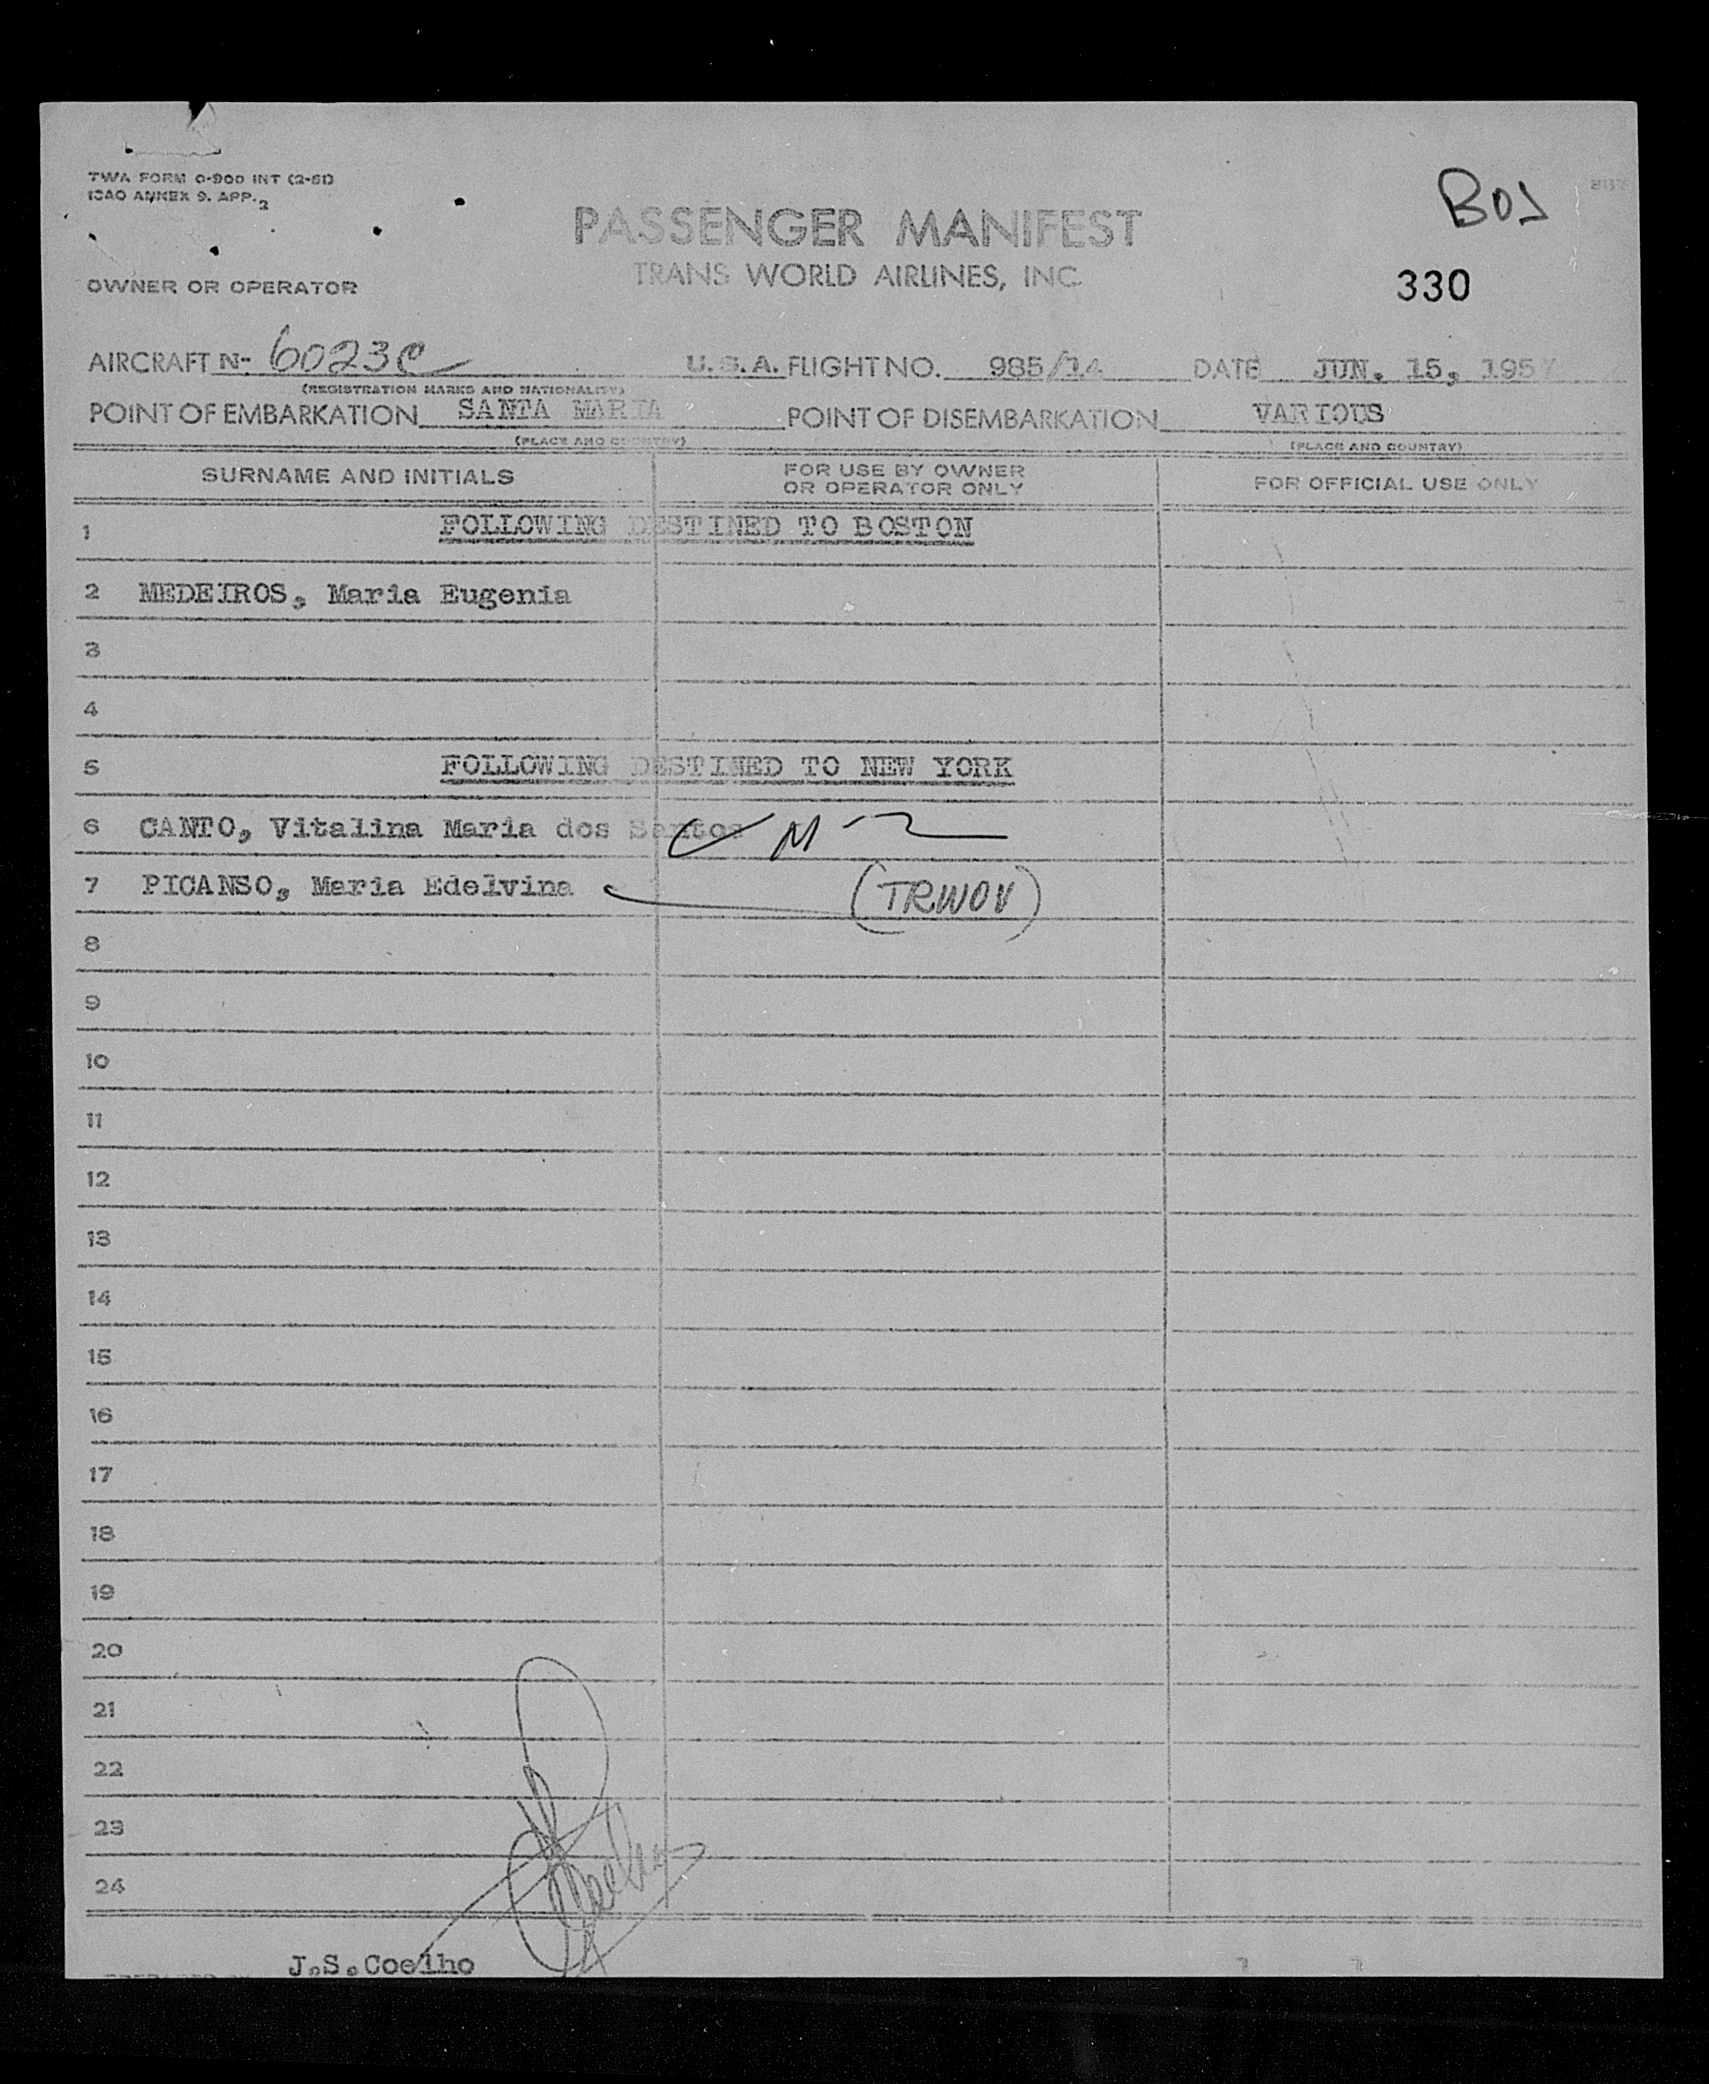 TWA FORM O-900 INT (2-51)
ICAO ANNEX 9. APP. 2
BOS
PASSENGER MANIFEST
TRANS WORLD AIRLINES, INC
330
OWNER OR OPERATOR
AIRCRAFT N- 6023C U.S.A. FLIGHT NO. 985/14 DATE JUN. 15, 195
(REGISTRATION MARKS AND NATIONALITY)
POINT OF EMBARKATION SANTA MARIA POINT OF DISEMBARKATION VARIOUS
(PLACE AND COUNTRY) (PLACE AND COUNTRY)
SURNAME AND INITIALS FOR USE BY OWNER OR OPERATOR ONLY FOR OFFICIAL USE ONLY
1 FOLLOWING DESTINED TO BOSTON
2 MEDEIROS, Maria Eugenia
3
4
5 FOLLOWING DESTINED TO NEW YORK
6 CANTO, Vitalina Maria dos Santos
7 PICANSO, Maria Edelvina (TRWOV)
8
9
10
11
12
13
14
15
16
17
18
19
20
21
22
23
24
J.S.Coelho